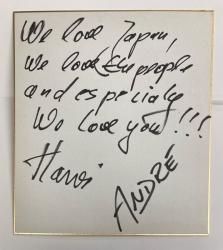 We love Japan,
We love the people
and especialy
We love you!!!
Hansi
ANDRÉ